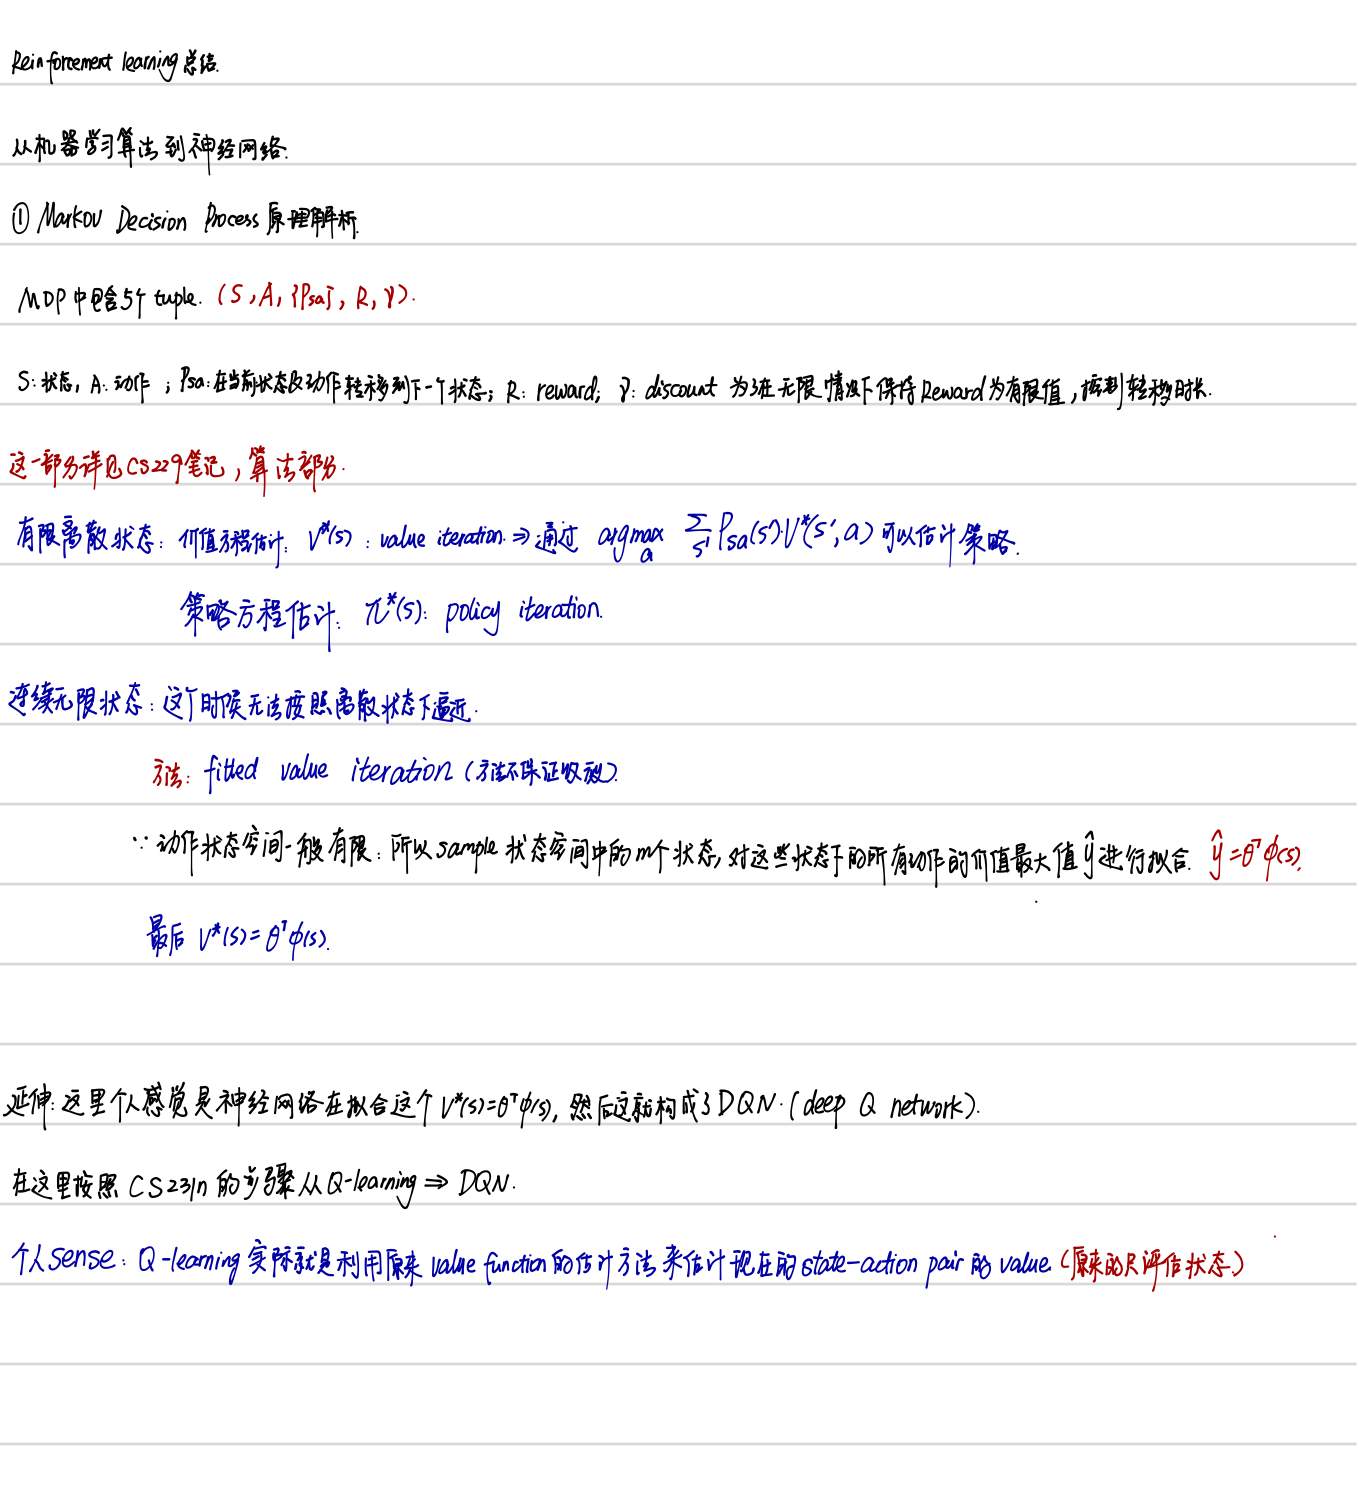 Reinforcement learning 总结.
从机器学习算法到神经网络.
① Markov Decision Process 原理解析.
MDP中包含5个 tuple. (S, A, {Psa}, R, γ).
S: 状态, A: 动作 ; Psa: 在当前状态及动作转移到下一个状态; R: reward; γ: discount 为了在无限情况下保持Reward为有限值, 控制转移时长.
这一部分详见CS229笔记, 算法部分.
有限离散状态: 价值方程估计: V*(s) : value iteration. ⇒ 通过 argmax_a Σ_s' Psa(s')V*(s', a) 可以估计策略.
策略方程估计: π*(s): policy iteration.
连续无限状态: 这个时候无法按照离散状态下逼近.
方法: fitted value iteration (方法不保证收敛).
∵ 动作状态空间一般有限: 所以sample 状态空间中的m个状态, 对这些状态下的所有动作的价值最大值 ŷ 进行拟合. ŷ = θᵀϕ(s).
最后 V*(s) = θᵀϕ(s).
延伸: 这里个人感觉是神经网络在拟合这个 V*(s)=θᵀϕ(s), 然后这就构成了DQN. (deep Q network).
在这里按照 CS231n 的步骤从Q-learning ⇒ DQN.
个人sense: Q-learning 实际就是利用原来 value function的估计方法来估计现在的state-action pair 的 value (原来的只评估状态.)